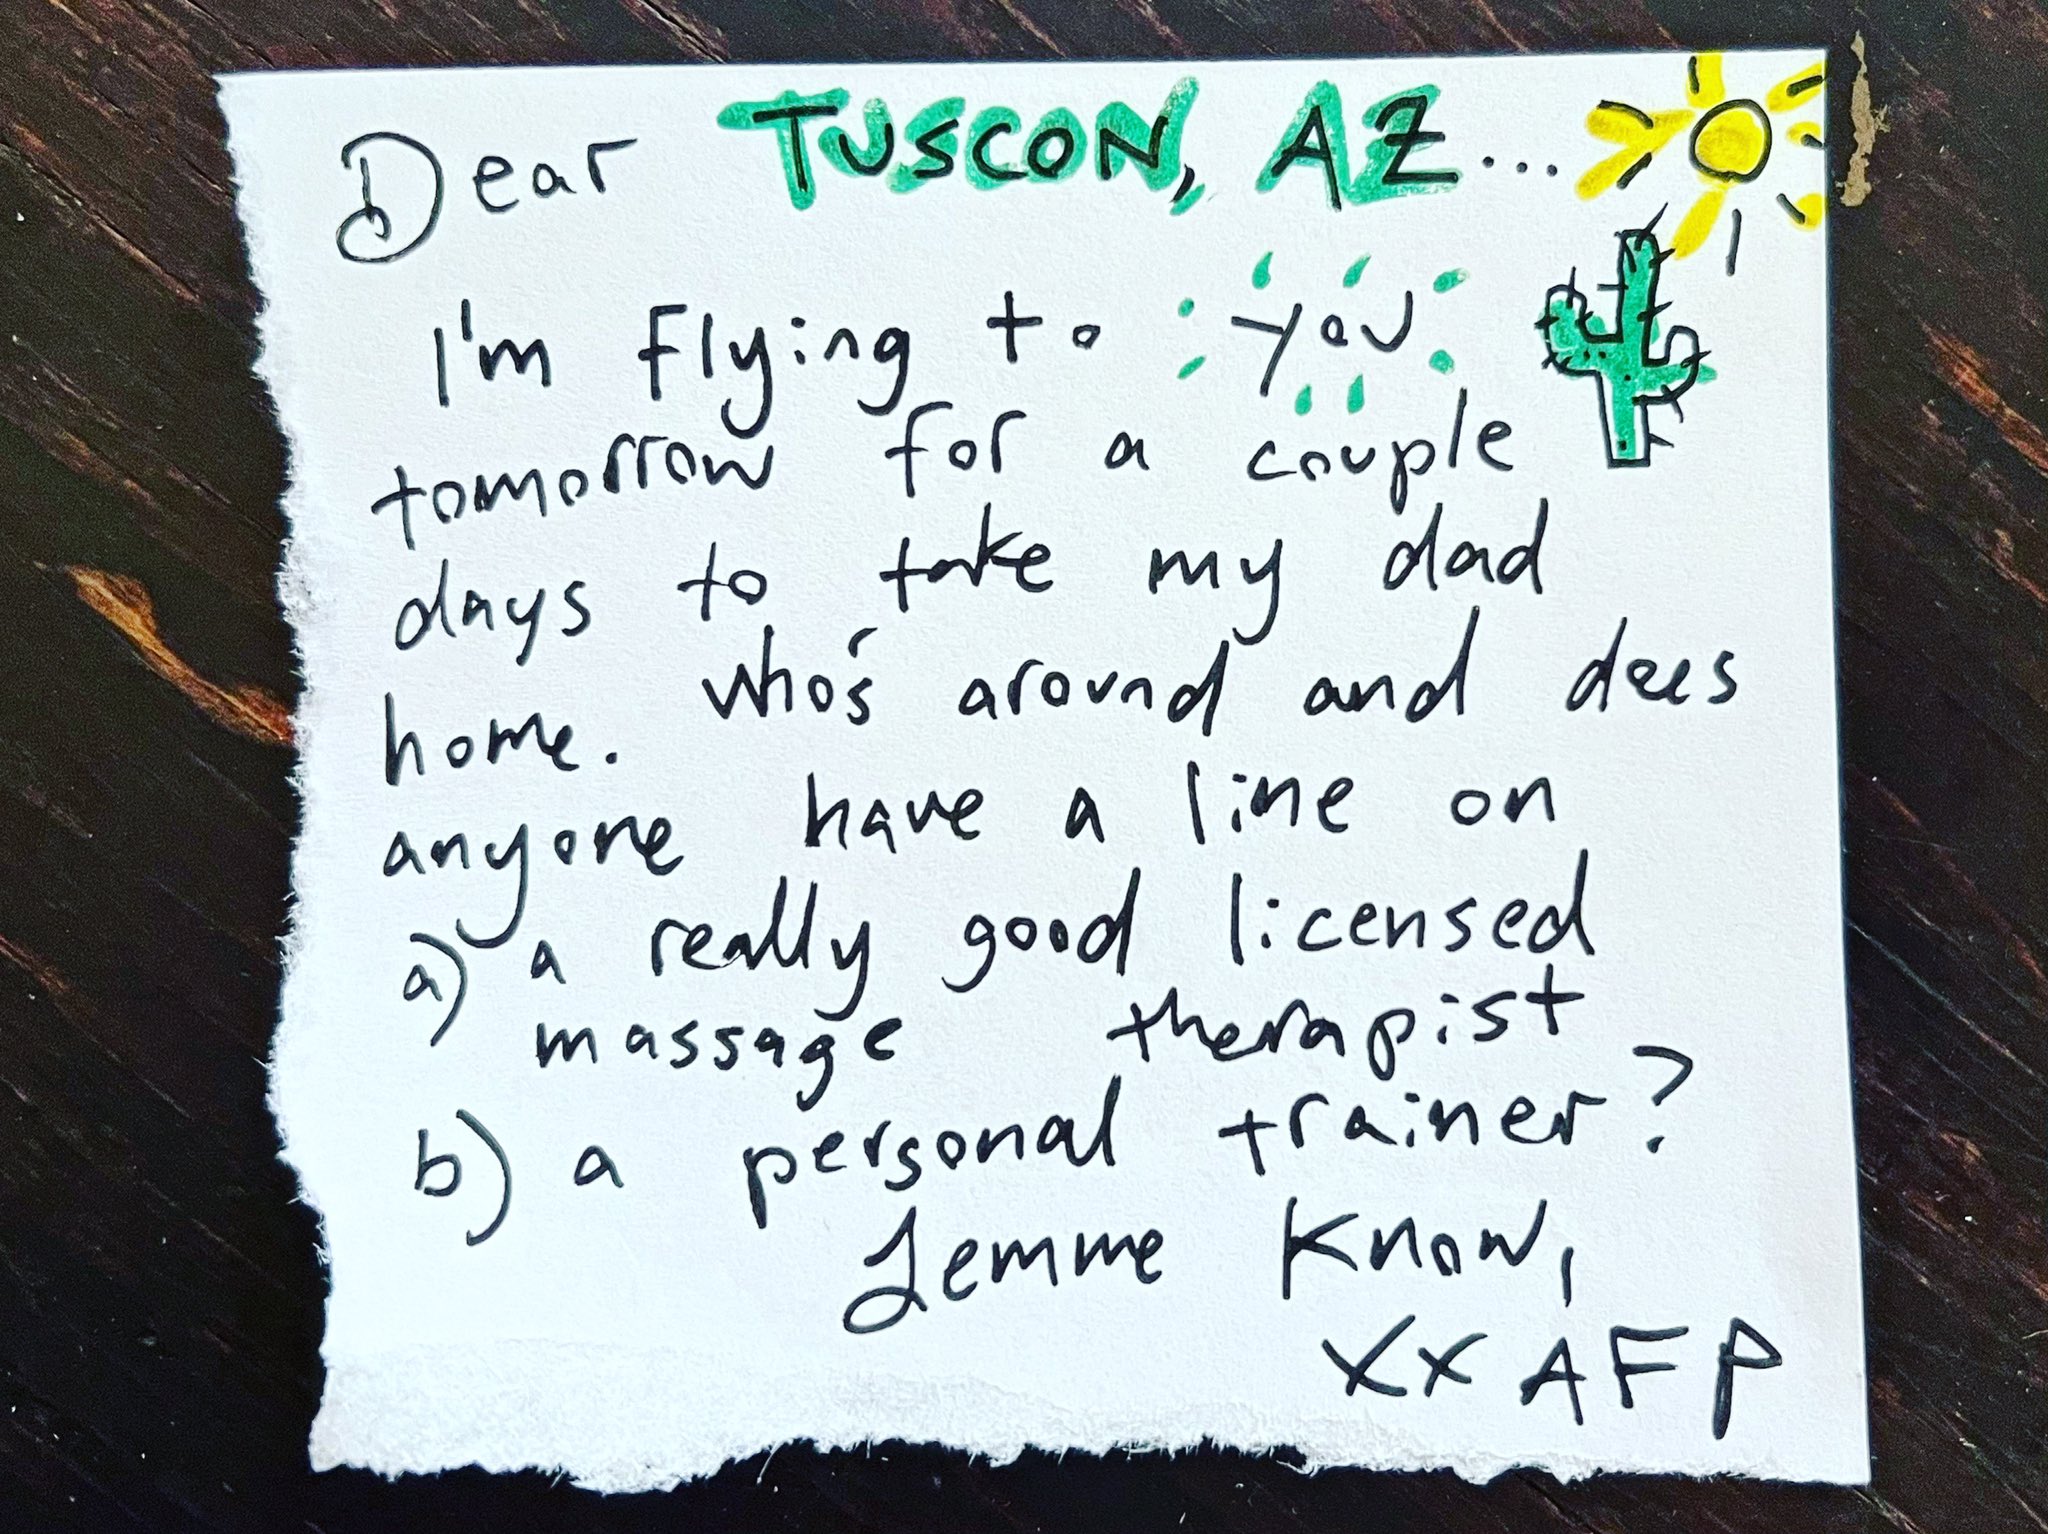 Dear TUSCON, AZ...
I'm flying to you
tomorrow for a couple
days to take my dad
home. who's around and does
anyone have a line on
a) a really good licensed
massage therapist
b) a personal trainer?
Lemme know,
XX AFP